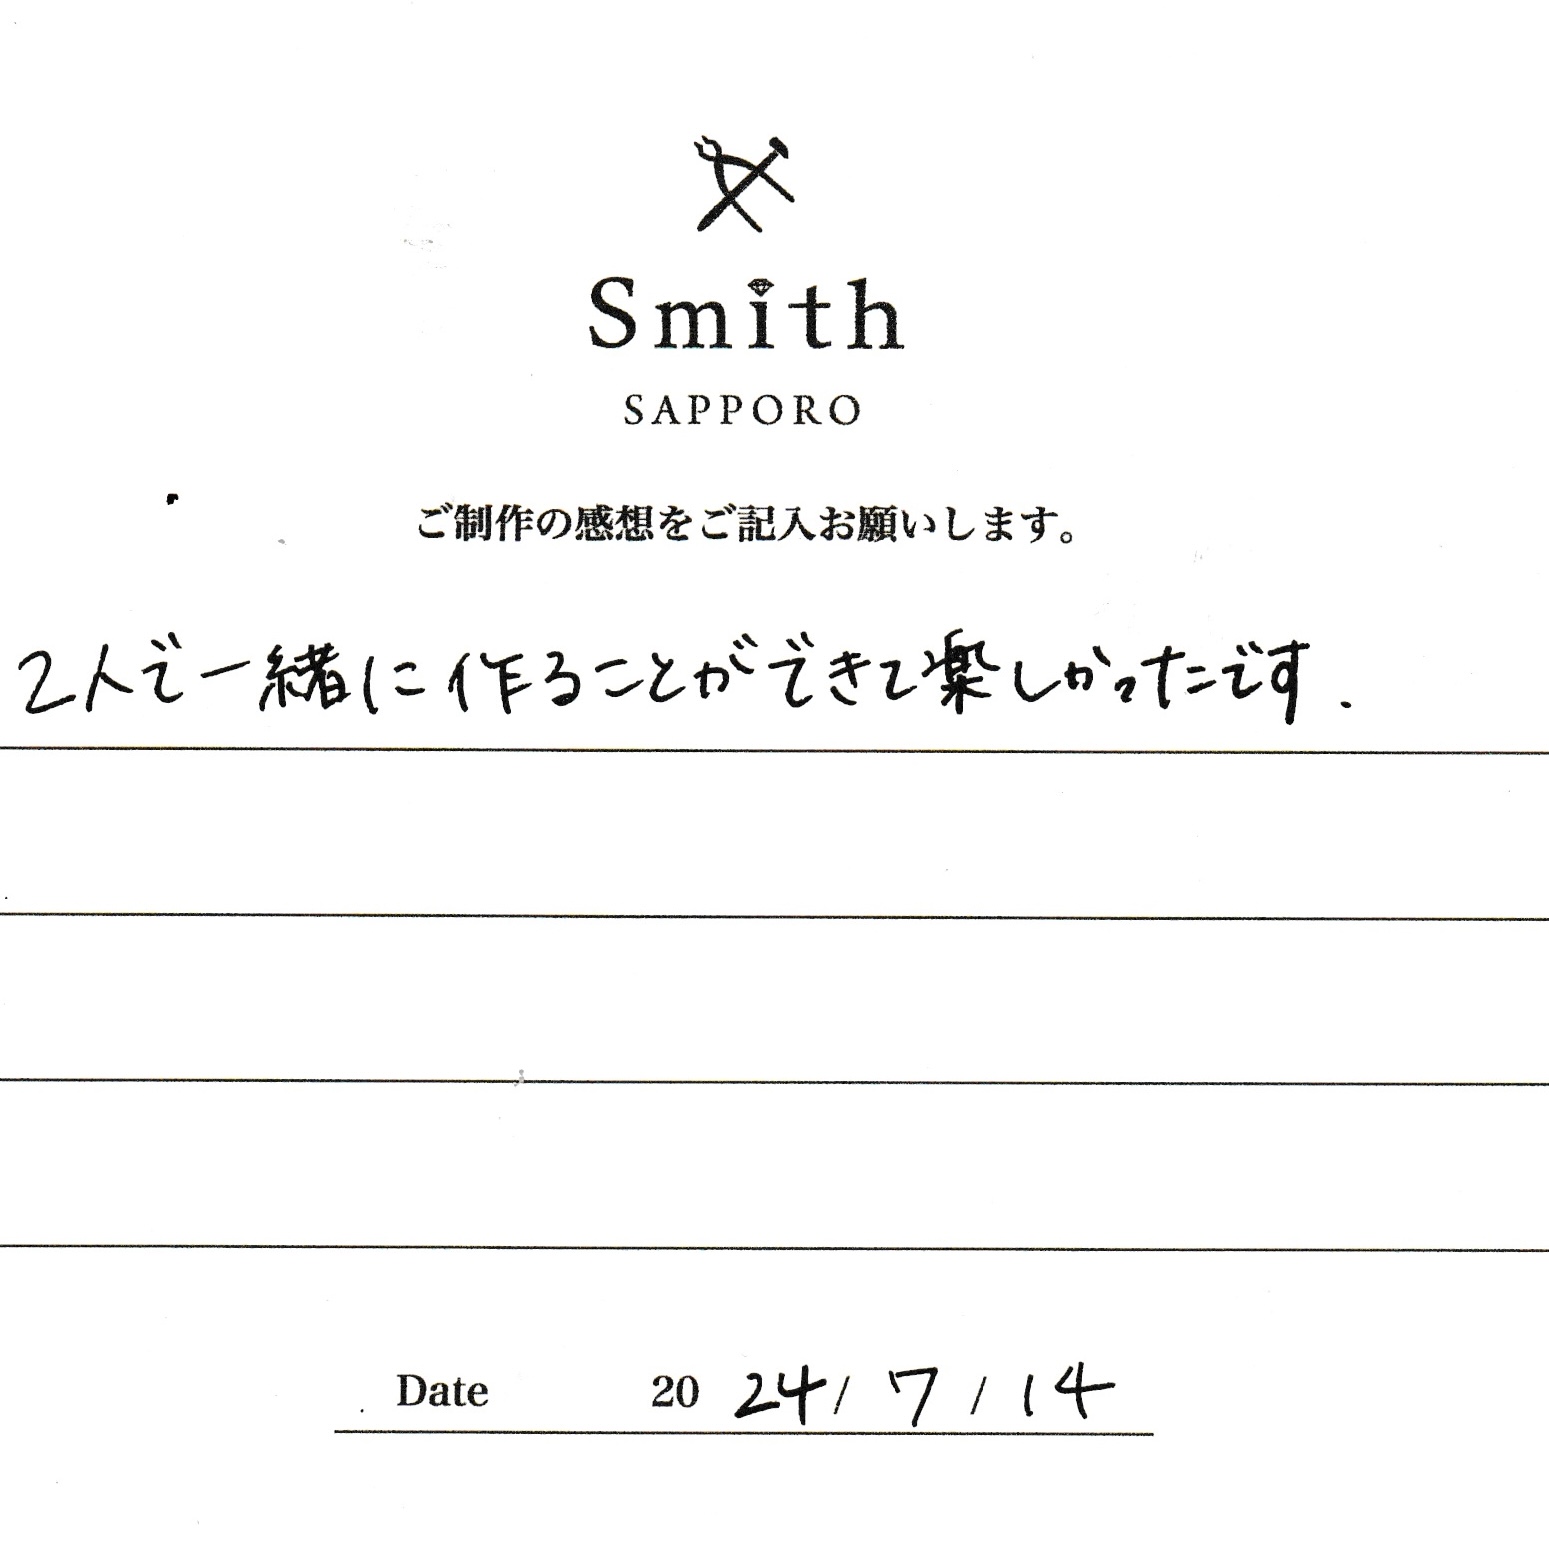 Smith
SAPPORO
ご制作の感想をご記入お願いします。
2人で一緒に作ることができて楽しかったです.
Date 20 24 / 7 / 14